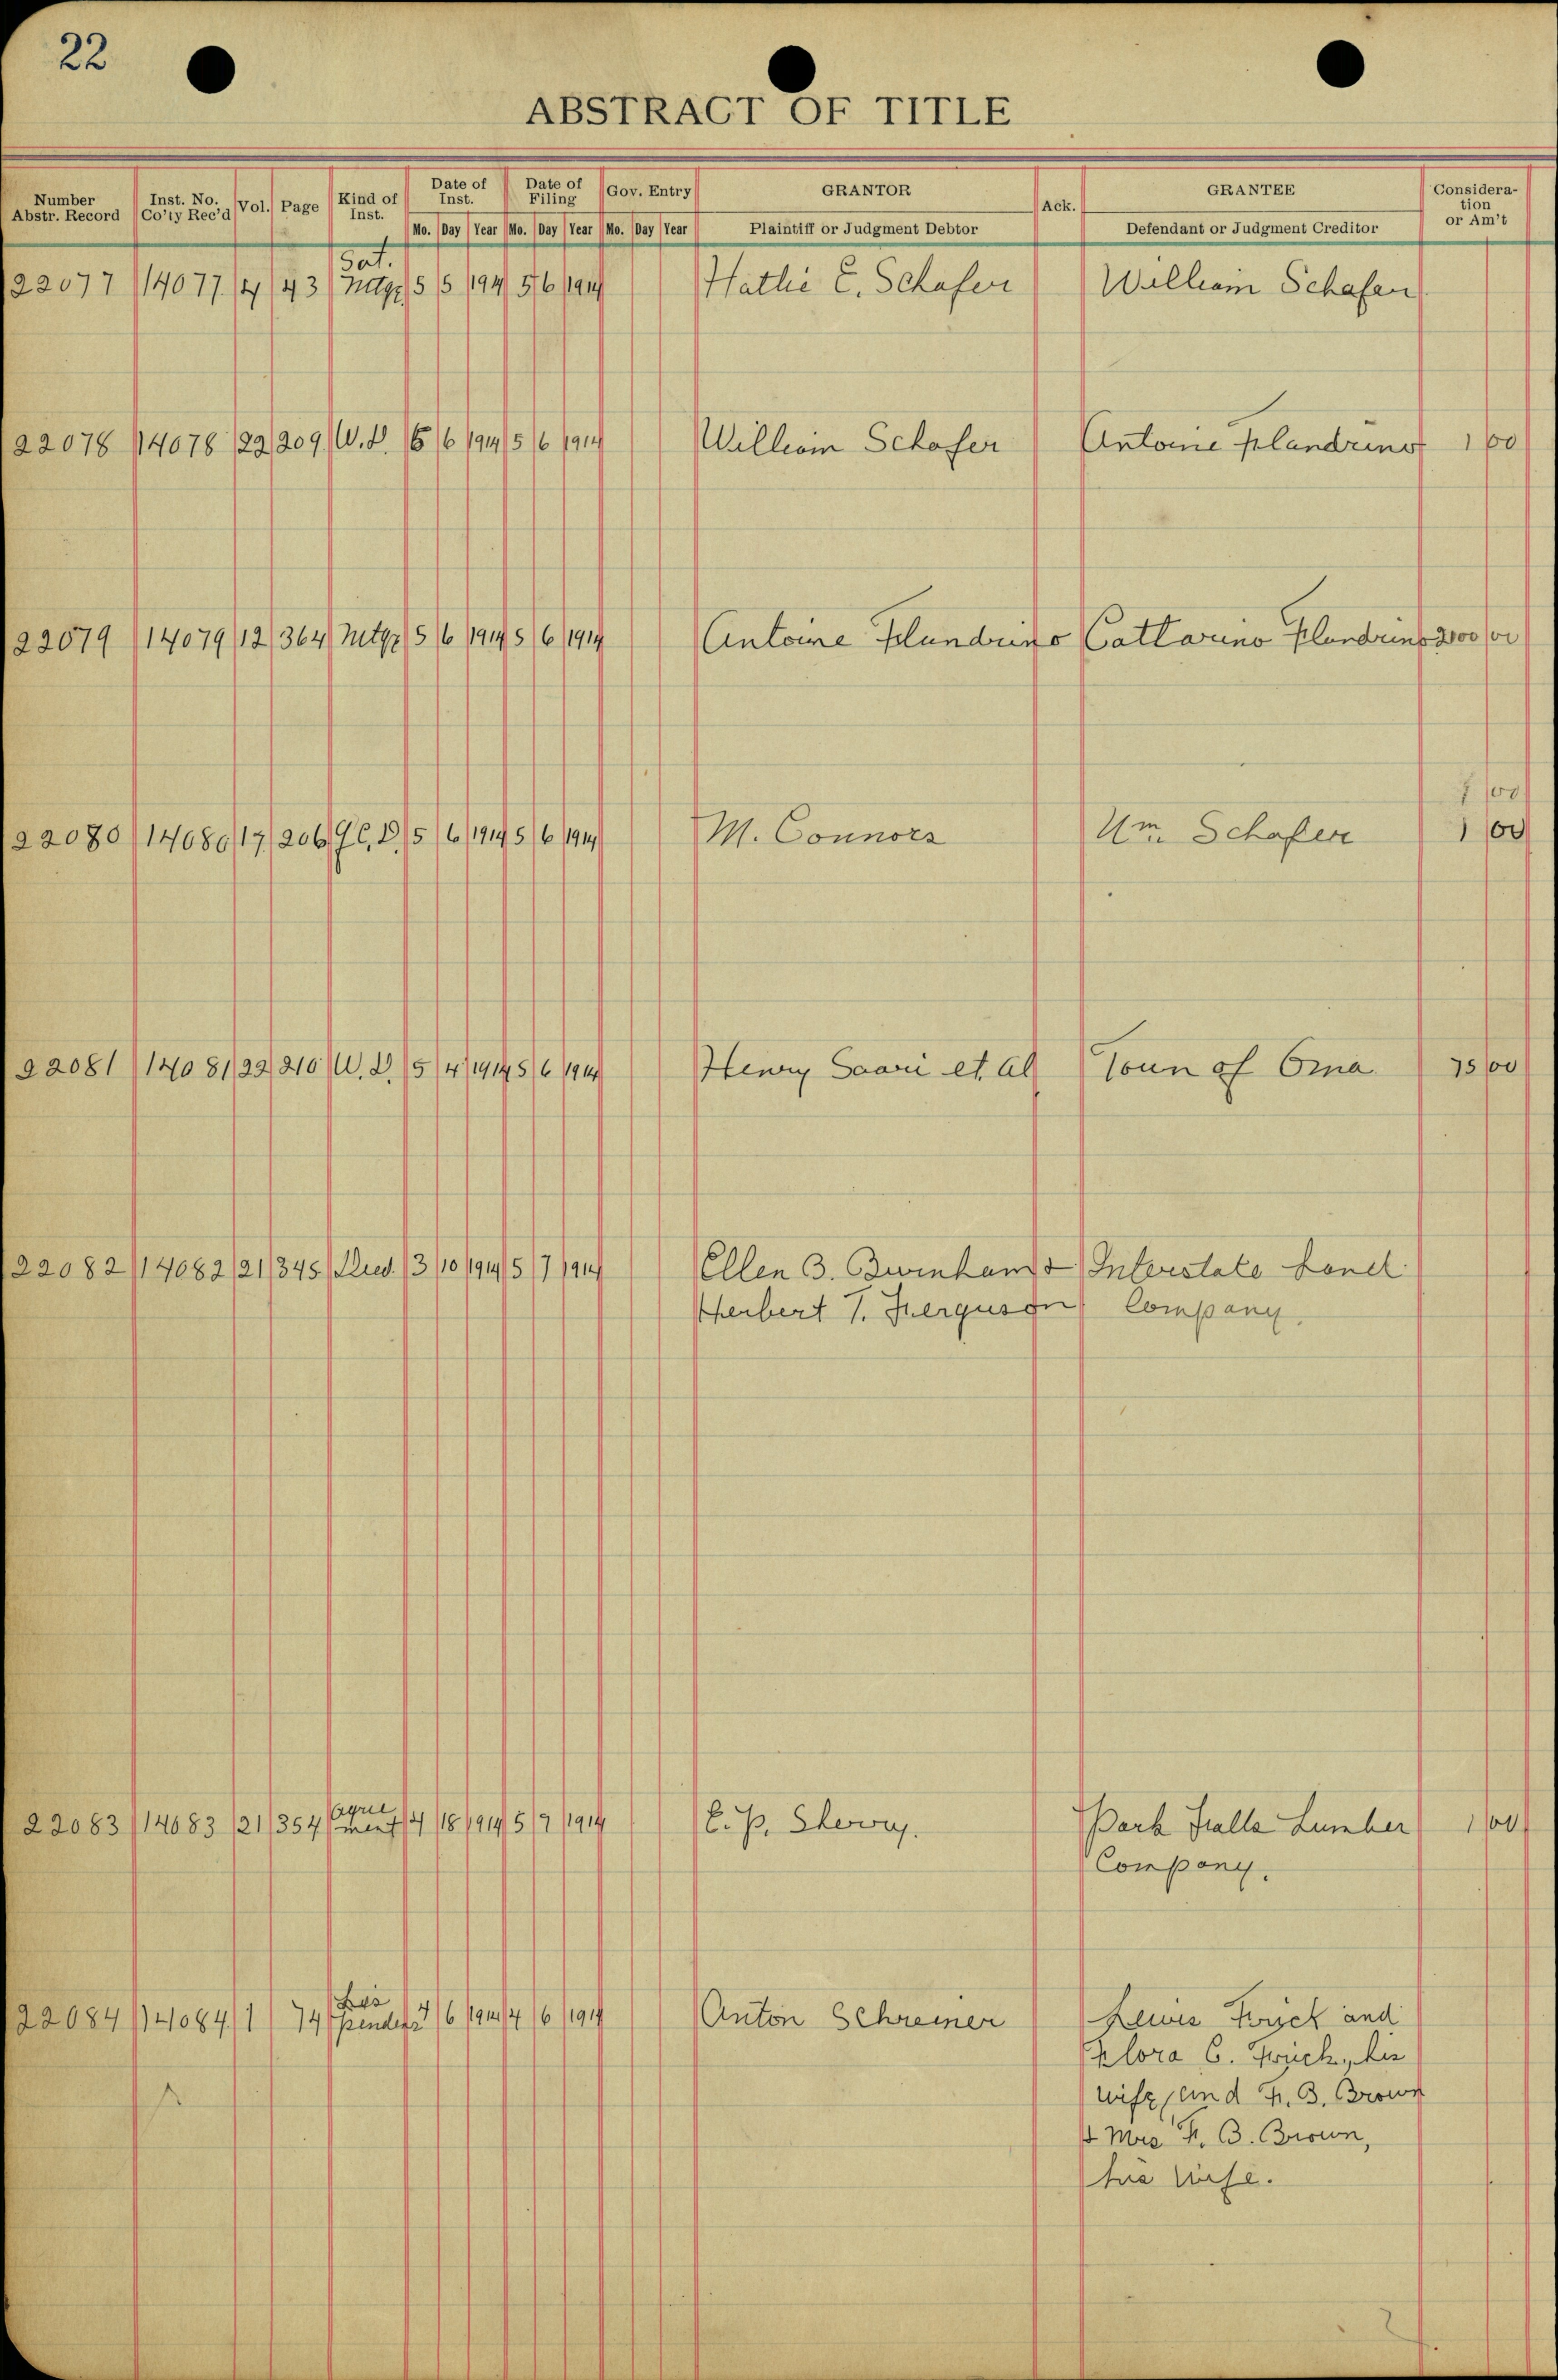 22
ABSTRACT OF TITLE
Number Abstr. Record Inst. No. Co'ty Rec'd Vol. Page Kind of Inst. Date of Inst. Date of Filing Gov. Entry GRANTOR Ack. GRANTEE Consideration or Am't
Mo. Day Year Mo. Day Year Mo. Day Year Plaintiff or Judgment Debtor Defendant or Judgment Creditor
Sat.
22077 14077 4 43 Mtge 5 5 1914 5 6 1914 Hattie E. Schafer William Schafer
22078 14078 22 209 W.D. 5 6 1914 5 6 1914 William Schafer Antoine Flandrino 1 00
22079 14079 12 364 Mtge 5 6 1914 5 6 1914 Antoine Flundrino Cattarino Flandrino 200 00
1 00
22080 14080 17 206 Q.C.D. 5 6 1914 5 6 1914 M. Connors Wm. Schafer 1 00
22081 14081 22 210 W.D. 5 4 1914 5 6 1914 Henry Saari et. al Town of Oma 75 00
22082 14082 21 345 Deed 3 10 1914 5 7 1914 Ellen B. & Interstate Land
Herbert T. Ferguson Company.
22083 14083 21 354 Agreement 4 18 1914 5 7 1914 E. P. Sherry. Park Falls Lumber 1 00
Company.
Lis
22084 14084 1 74 pendens 4 6 1914 4 6 1914 Anton Schreiner Lewis Frick and
Flora C. Frick, his
wife, and F. B. Brown
& Mrs F. B. Brown,
his wife.